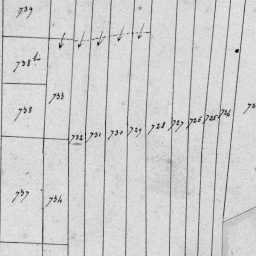 739
738 b
738
733
732 731 730 729 728 727 726 725 724
737
734